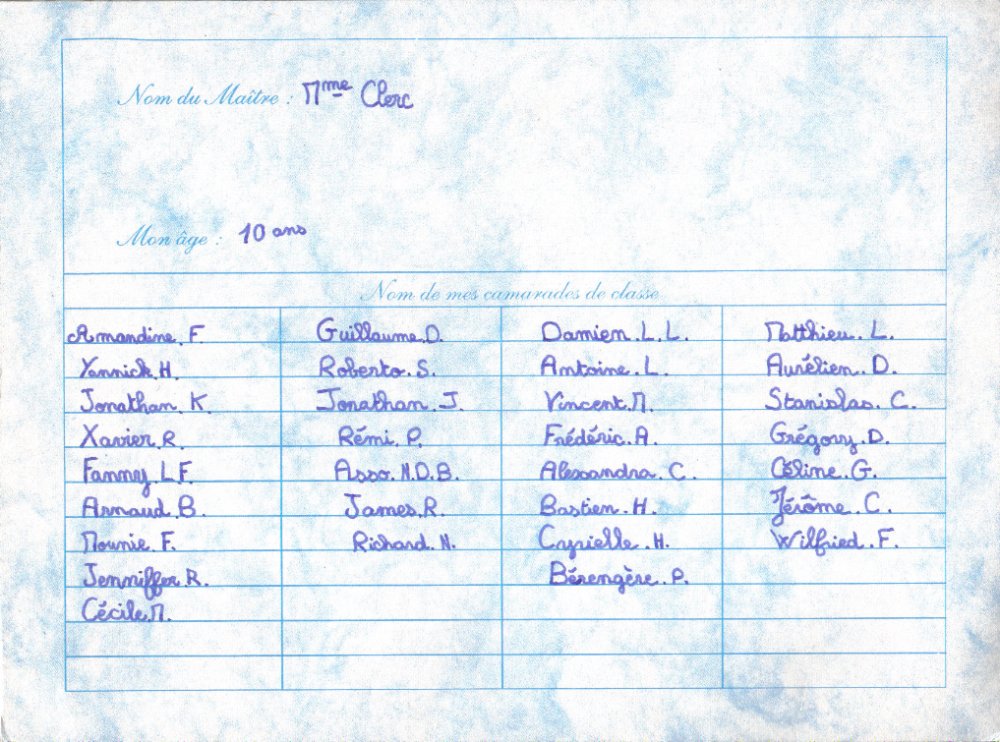 Nom du Maître : Mme Clerc
Mon âge : 10 ans
Nom de mes camarades de classe
Amandine. F. Guillaume. D. Damien. L. L. Matthieu. L.
Yannick. H. Roberto. S. Antoine. L. Aurélien. D.
Jonathan. K. Jonathan. J. Vincent. M. Stanislas. C.
Xavier. R. Rémi. P. Frédéric. A. Grégory. D.
Fanney. L. F. Asso. N. D. B. Alessandra. C. Céline. G.
Arnaud. B. James. R. Bastien. H. Jérôme. C.
Mounie. F. Richard. N. Cyrielle. H. Wilfried. F.
Jenniffer. R. Bérengère. P.
Cécile. M.